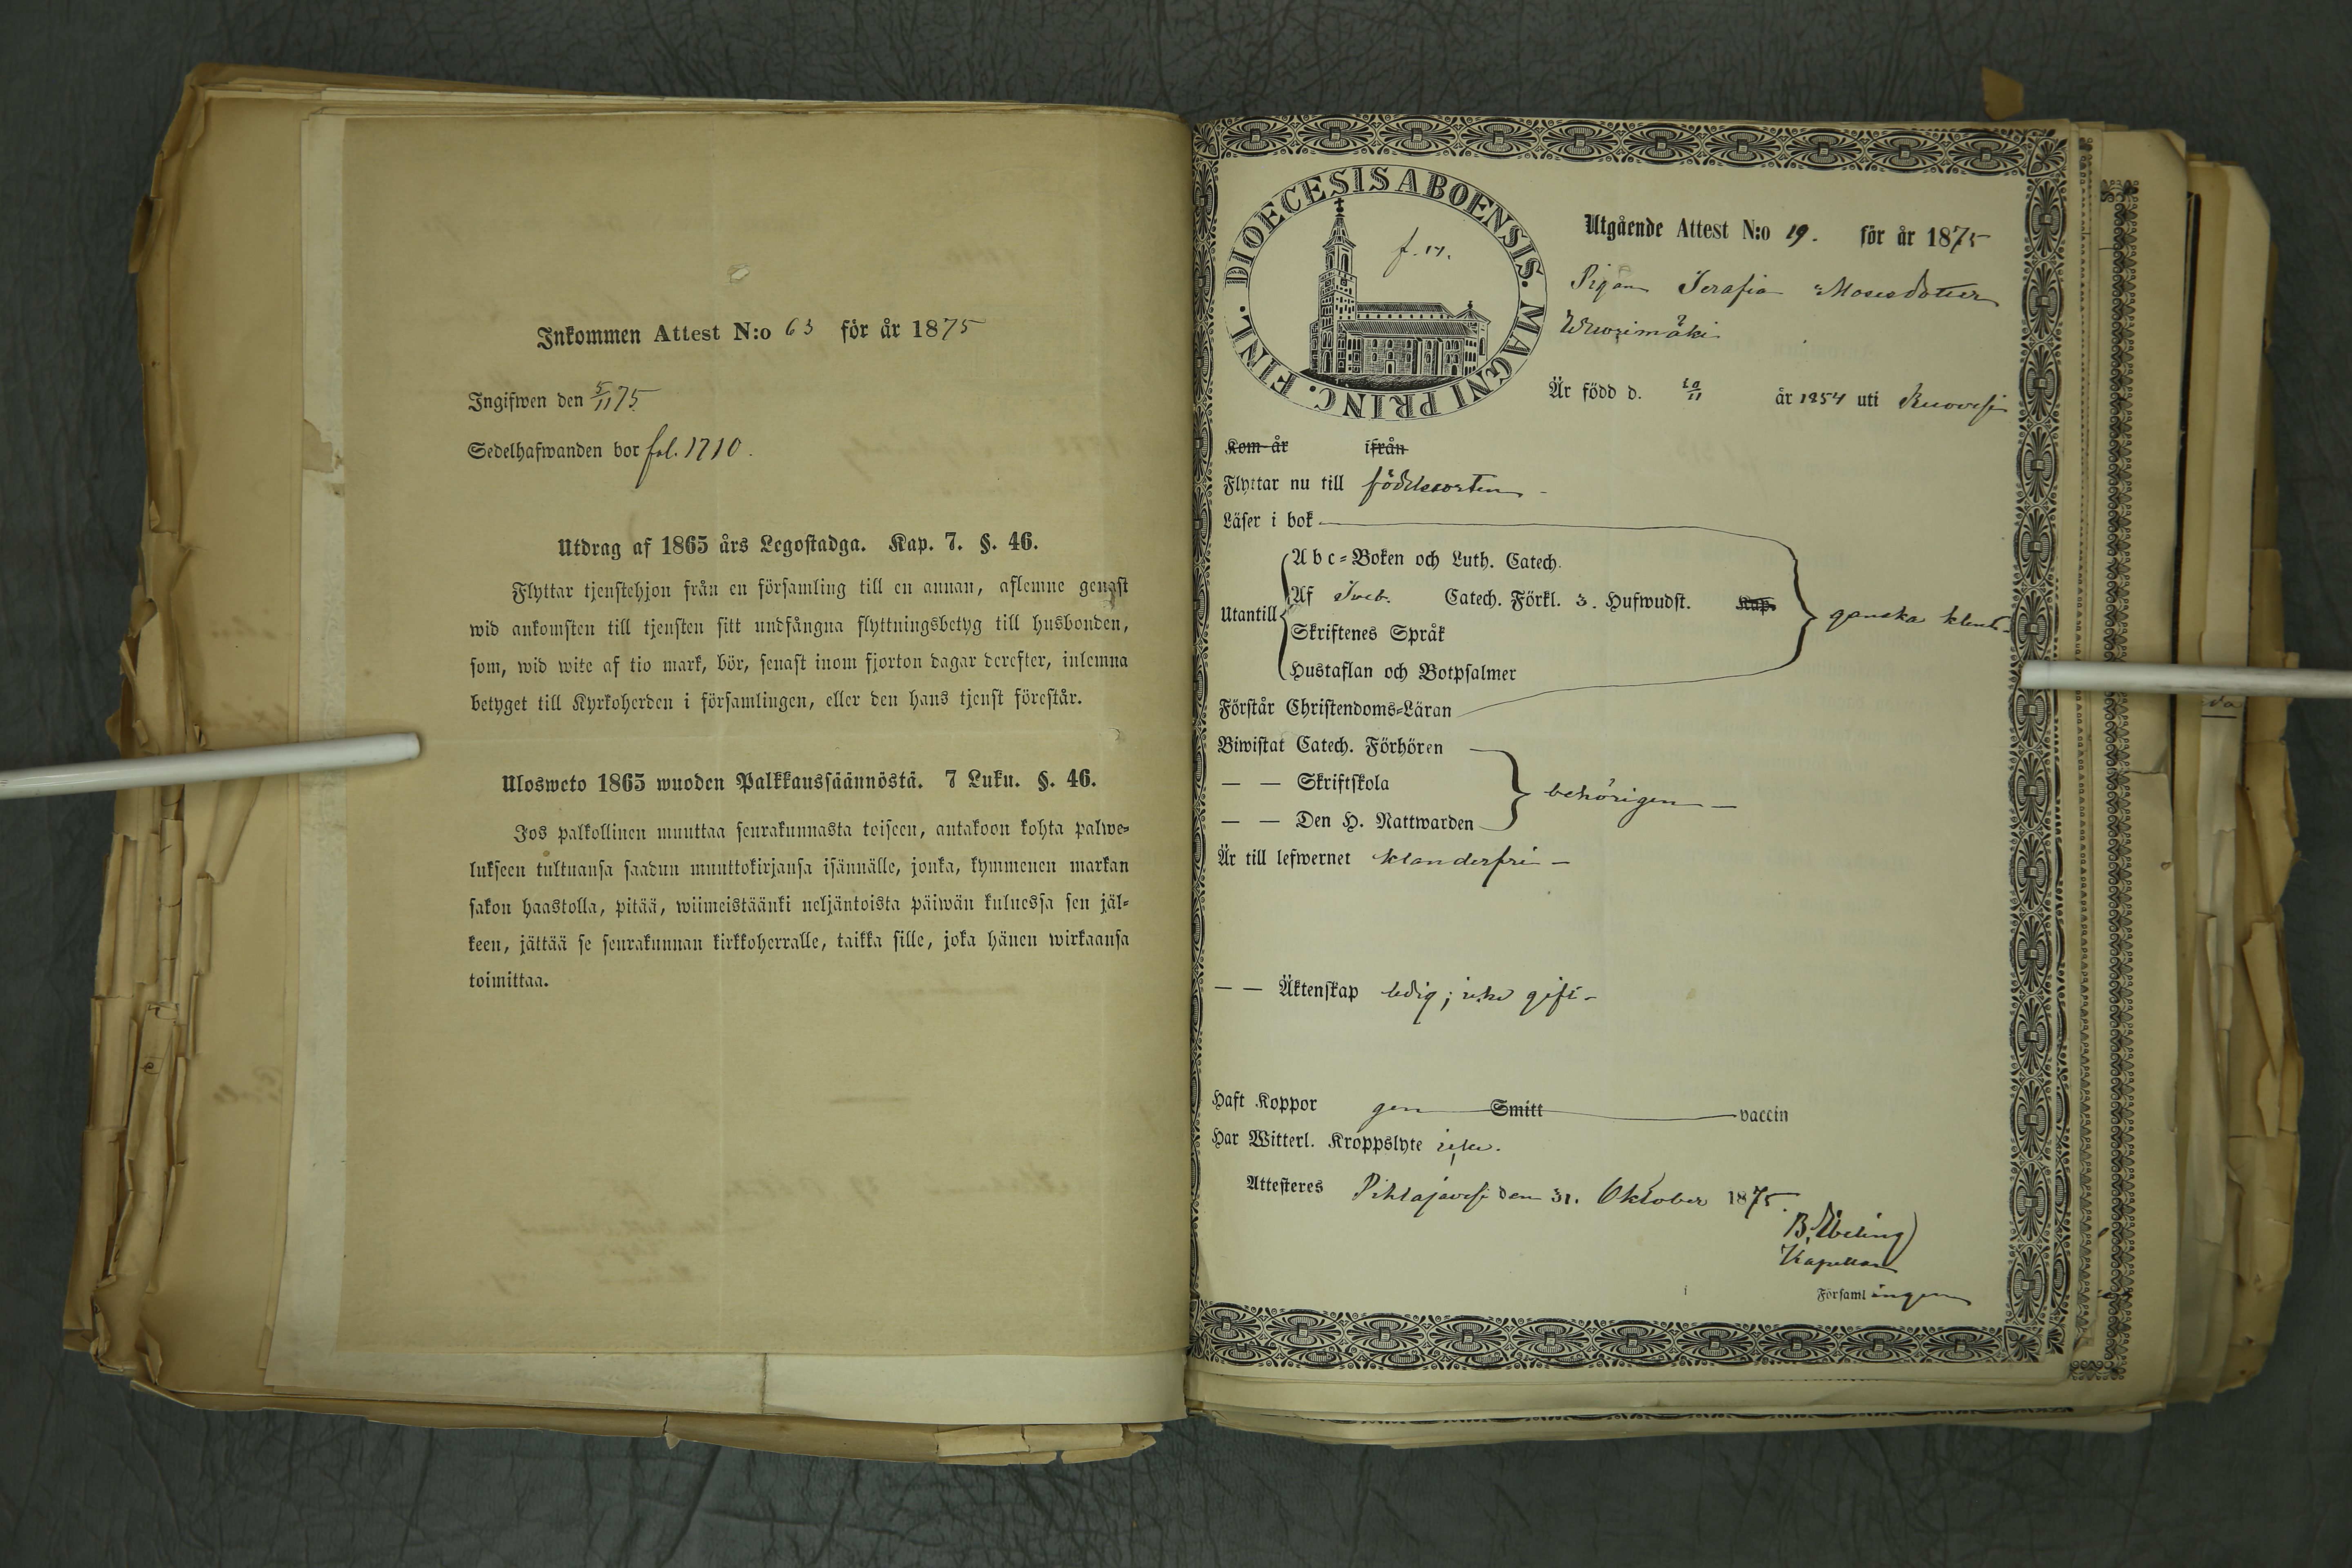 Inkommen Attest N:o 63 för år 1875
Ingifwen den 5/11 75
Sedelhafwanden bor fol. 1710.
Utdrag af 1865 års Legostadga. Kap. 7. §. 46.
Flyttar tjenstehjon från en församling till en annan, aflemne genast
wid ankomsten till tjensten sitt undfångna flyttningsbetyg till husbonden,
som, wid wite af tio mark, bör, senast inom fjorton dagar derefter, inlemna
betyget till Kyrkoherden i församlingen, eller den hans tjenst förestår.
Ulosweto 1865 wuoden Palkkaussäännöstä. 7 Luku. §. 46.
Jos palkollinen muuttaa seurakunnasta toiseen, antakoon kohta palwe-
lukseen tultuansa saadun muuttokirjansa isännälle, jonka, kymmenen markan
sakon haastolla, pitää, wiimeistäänki neljäntoista päiwän kuluessa sen jäl-
keen, jättää se seurakunnan kirkkoherralle, taikka sille, joka hänen wirkaansa
toimittaa.
DIOECESIS ABOENSIS. MAGNI PRINC. FINL.
f. 17.
Utgående Attest N:o 19. för år 1875
Pigan Serafia Mosesdotter
Wuorimäki
Är född d. 20/11 år 1854 uti Ruovesi
Kom år ifrån
Flyttar nu till födelseorten -
Läser i bok
Utantill
Abc-Boken och Luth. Catech.
Af Sveb. Catech. Förkl. 3. Hufwudst. Kap.
Skriftenes Språk
Hustaflan och Botpsalmer
ganska klent.
Förstår Christendoms-Läran
Biwistat Catech. Förhören
— — Skriftskola
— — Den H. Nattwarden
behörigen —
Är till lefwernet klanderfri —
— — Äktenskap ledig; icke gift -
Haft Koppor gen Smitt vaccin
Har Witterl. Kroppslyte icke.
Attesteres Pihlajavesi den 31. Oktober 1875.
B. Äbeling
Kapellan
Församlingen